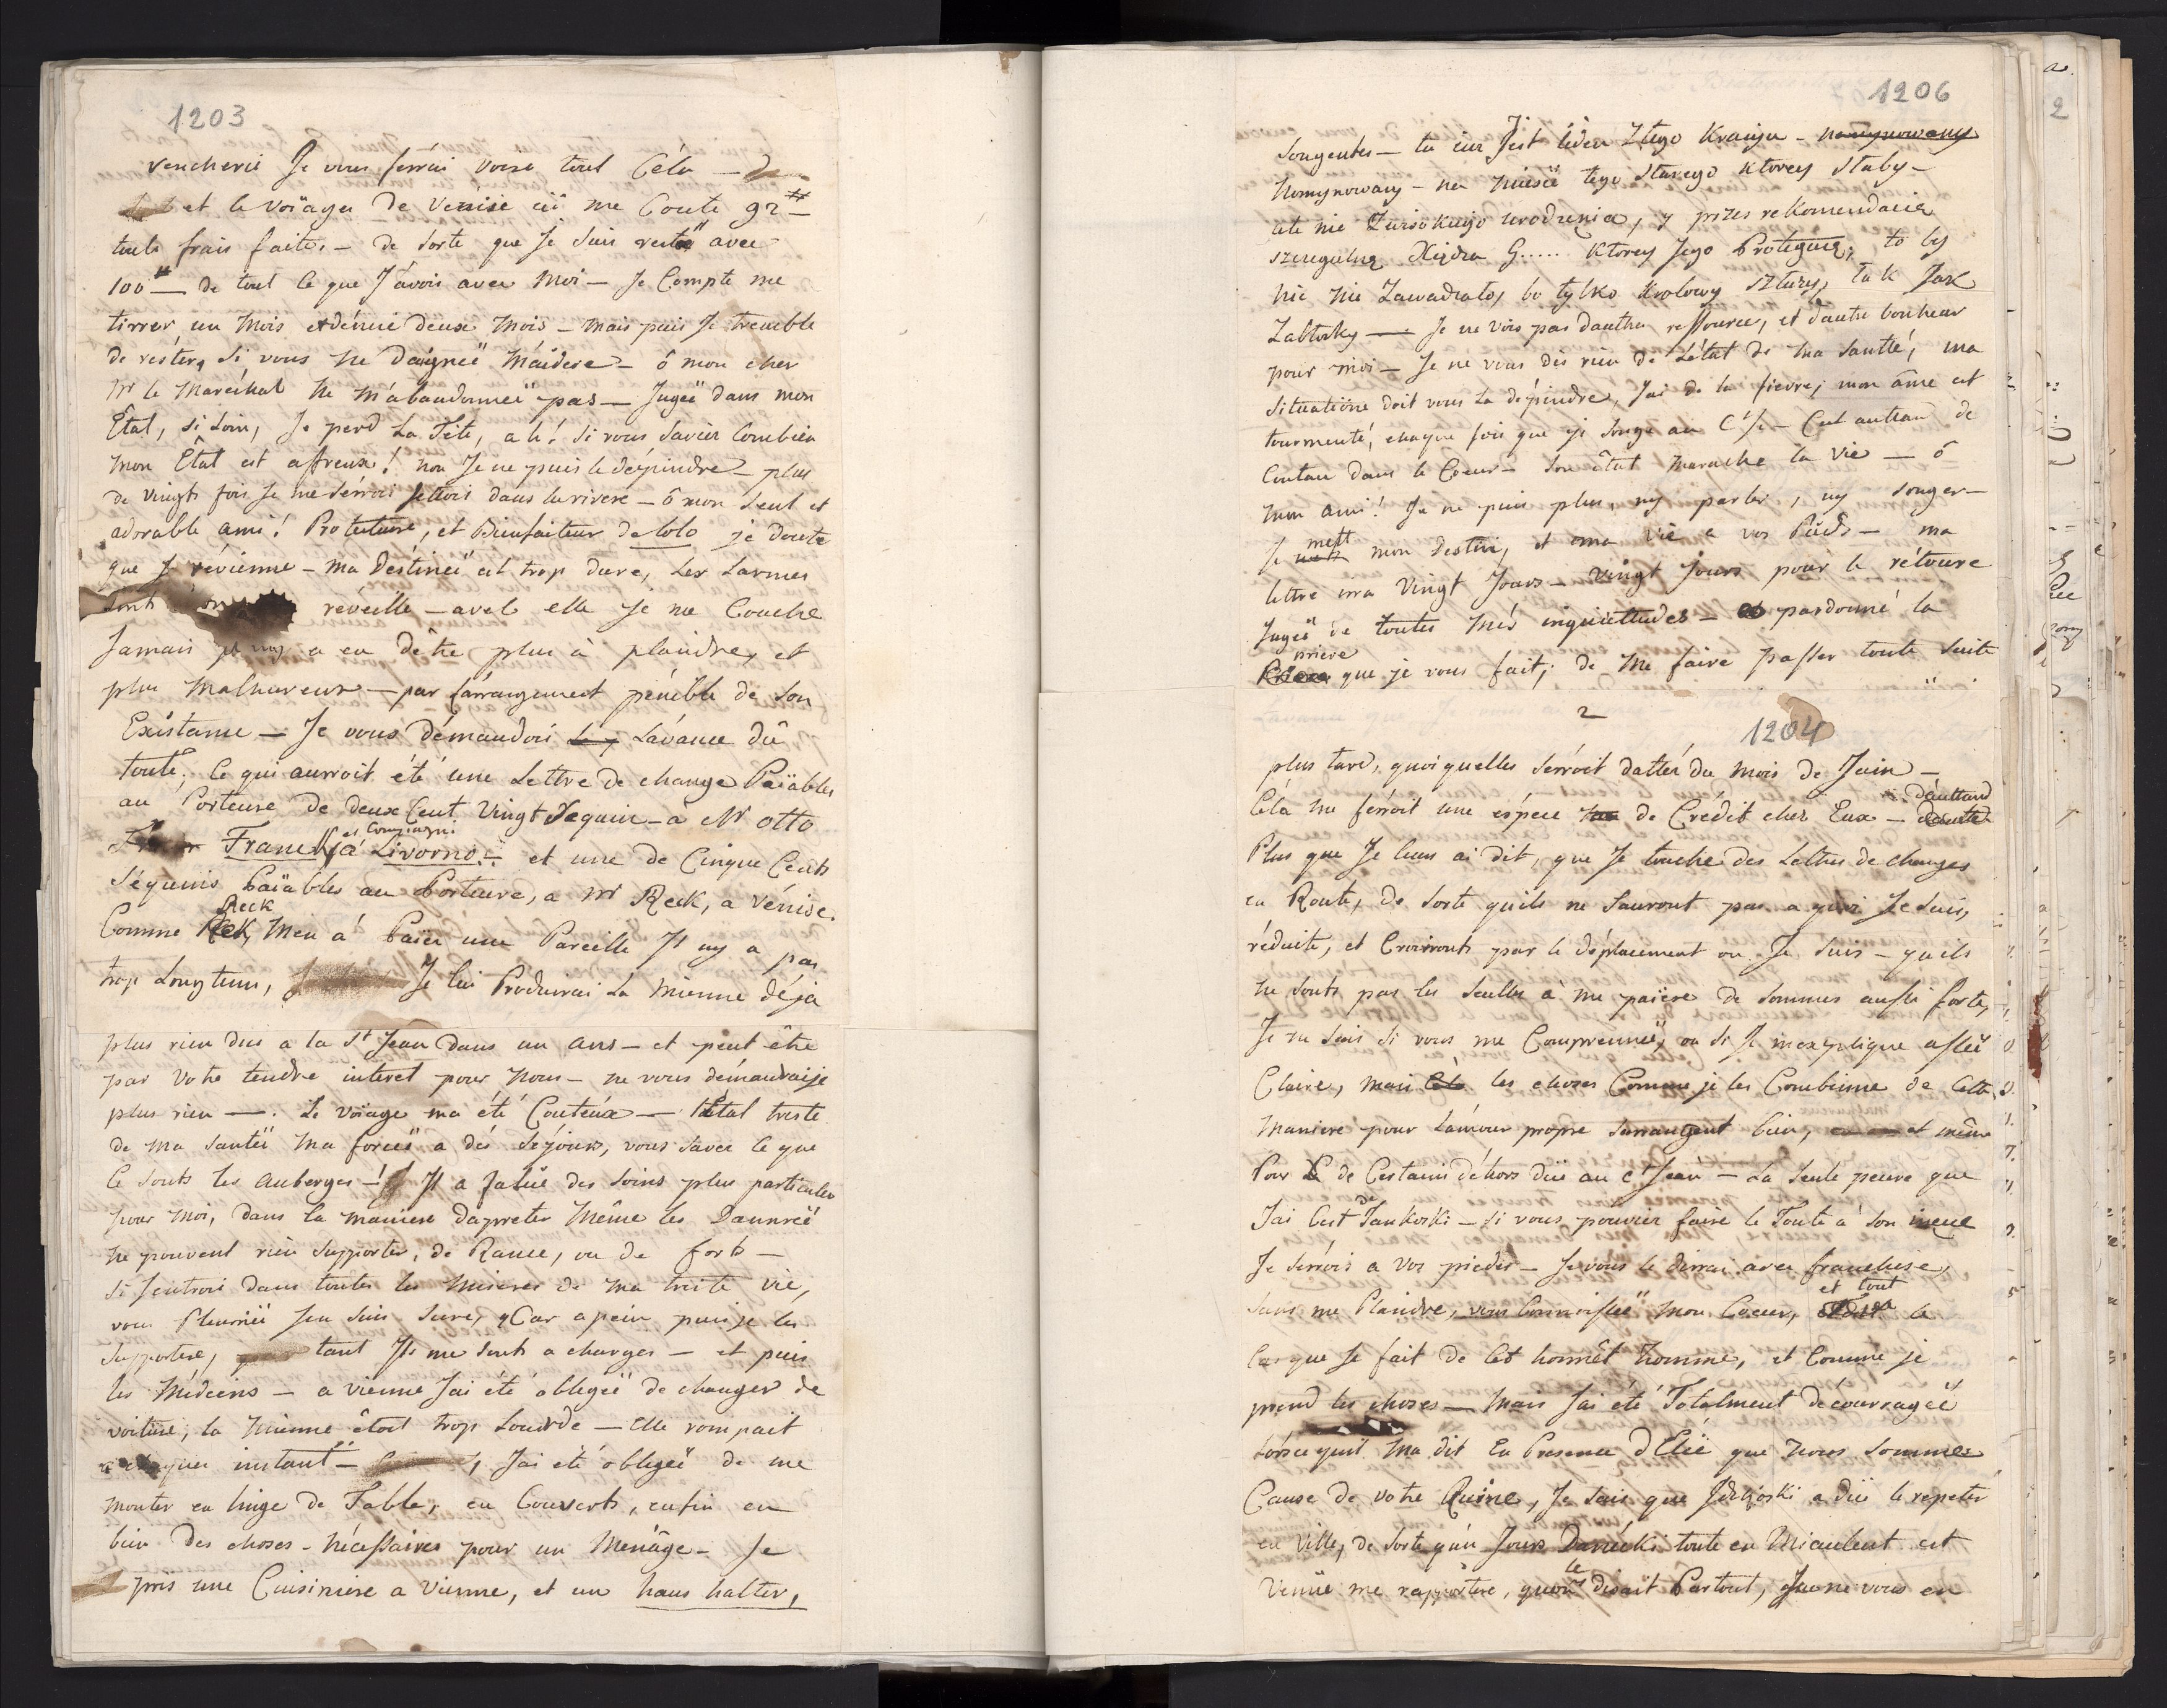 1203
vencherie Je vous ferrai voire tout Céla —
et le voïage de Venise ici me Coute 92#
toute frais faites — de sorte que Je suis restëé avec
100# — de tout ce que J'avois avec moi — Je Compte me
tirrer un mois et démie deux mois — mais puis Je tremble
de réster, si vous ne daignëé m'aidere — ô mon cher
Mr le Maréchal ne m'abandonneë pas — Jugeë dans mon
État, si loin, Je perd La Tête, ah! si vous saviez Combien
mon Êtat est affreux! non Je ne puis le dépindre — plus
de vingts fois Je me serrois jettois dans la rivere — ô mon seul et
adorable ami! Protecteure, et Bienfaiteur de lolo je doute
que Je révienne — ma Déstinëé est trop dure, Les Larmes
sont réveille — avec elle je me Couche
Jamais a eu dêtre plus à plaindre, et
plus Malhureux — par l'arrangement pénible de son
Existanse — Je vous démandois L'ávance dû
toute, Ce qui aurroit été une Lettre de change Païables
au Porteure de deux Cent Vingt Sequin — à Mr otto
Franck et Compagni à Livorno — et une de Cinque Cents
Séquins Païables au Porteure, a Mr Reck, a Vénise.
Comme Reck, M'en a Païer une Pareille Jl ny a pas
trop Longtems, Je lui Produirai La Mienne déja
plus rien dus a la St Jean dans un ans — et peut être
par Votre tendre intéret pour nous — ne vous démandraije
plus rien —. Le voïage ma été Couteux — l'Êtat triste
de ma santëé ma forcëé a des séjours, vous savez ce que
Ce sonts les auberges — Jl a falüe des soins plus particulers
pour moi, dans la maniere dapreter Même les Dannrëé
ne pouvent rien supporter, de Rance, ou de forts —
si J'entrois dans toutes les miseres de ma triste vie,
vous Pleuriëé J'en suis sure, Car apein puisje les
supportere, tant Jls me sonts a charges — et puis
les Médecins — a vienne Jai été obligëé de changer de
voiture, la Mienne étoit trop Lourde — elle rompait
a chaque instant — Jai été obligëé de me
monter en linge de Table, en Couverts, enfin en
bien des choses — nécessaires pour un Menâge — Je
pris une Cuisiniere a Vienne, et un haus halter,
1206
Songentes — ta iuz Jest ieden Ztego Kraiju — nomynowany
Nomynowany — na Miesce tego Starego Ktorey Staby —
ale nie Zwisokiego urodzenia, y przes rekomendacie
szeregulnę Xiędza G..... Ktorey Jego Proteguie, to by
nic nie Zawadzało, bo tylko Krolowy sztury, tak Jak
Zabłocky — Je ne vois pas dauther ressource, et dautre bonheur
pour moi — Je ne vous dis rien de Létat de ma santté, ma
situatione doit vous la dépindre, Jai de la fievre, mon âme est
tourmenté, chaque fois que j'i songe au C'J — Cest auttand de
Coutau dans le Coeur — son êtat Marache la vie — ô
mon ami! Je ne puis plus, ny parler, ny songer —
Je mett mon destin, et ma vie a vos Pieds — ma
lettre irra Vingt Jours — vingt Jours pour le rétoure
Jugeë de toutes mes inquiettudes — et pardonné la
priere que je vous fait, de me faire passer toute suite
2
1204
plus tard, quoiquelles serroit datter du mois de Juin —
Céla me ferroit une espece de Crédit chez Eux — dauttand
Plus que Je leurs ai dit, que Je touche des Lettres de changes
en Route, de sorte quils ne sauront pas a quoi Je suis
réduite, et Croirronts par le déplacement ou Je suis — quils
ne sonts pas les seulles à me païere de sommes aussi forte,
Je ne sais si vous me Comprennëé, ou si Je m'explique assëé
Claire, mais les choses Comme je les Combinne de Cette
maniere pour L'amour propre s'arrangent bien, et même
Pour de Certain déhors düe au C't Jean — La seule peure que
Jai Cest de Jankoski — si vous pouvier faire le Toute a son insue
Je serrois a vos pieders — Je vous le dirrai avec franchise,
sans me Plaindre, vous Connoissëé mon Coeur, et tout le
Cas que Je fait de Cet honnêt homme, et Comme je
prend les choses — mais Jai été Totalment découragëé
Lorsequil ma dit En Presence d'Elië que nous sommes
Cause de votre Ruine, Je sais que a düe le repeter
en Ville, de sorte qu'un Jours Daniecki toute en Miaulent est
Venüe me rapportere, quon le disait Partout, Je ne vous en